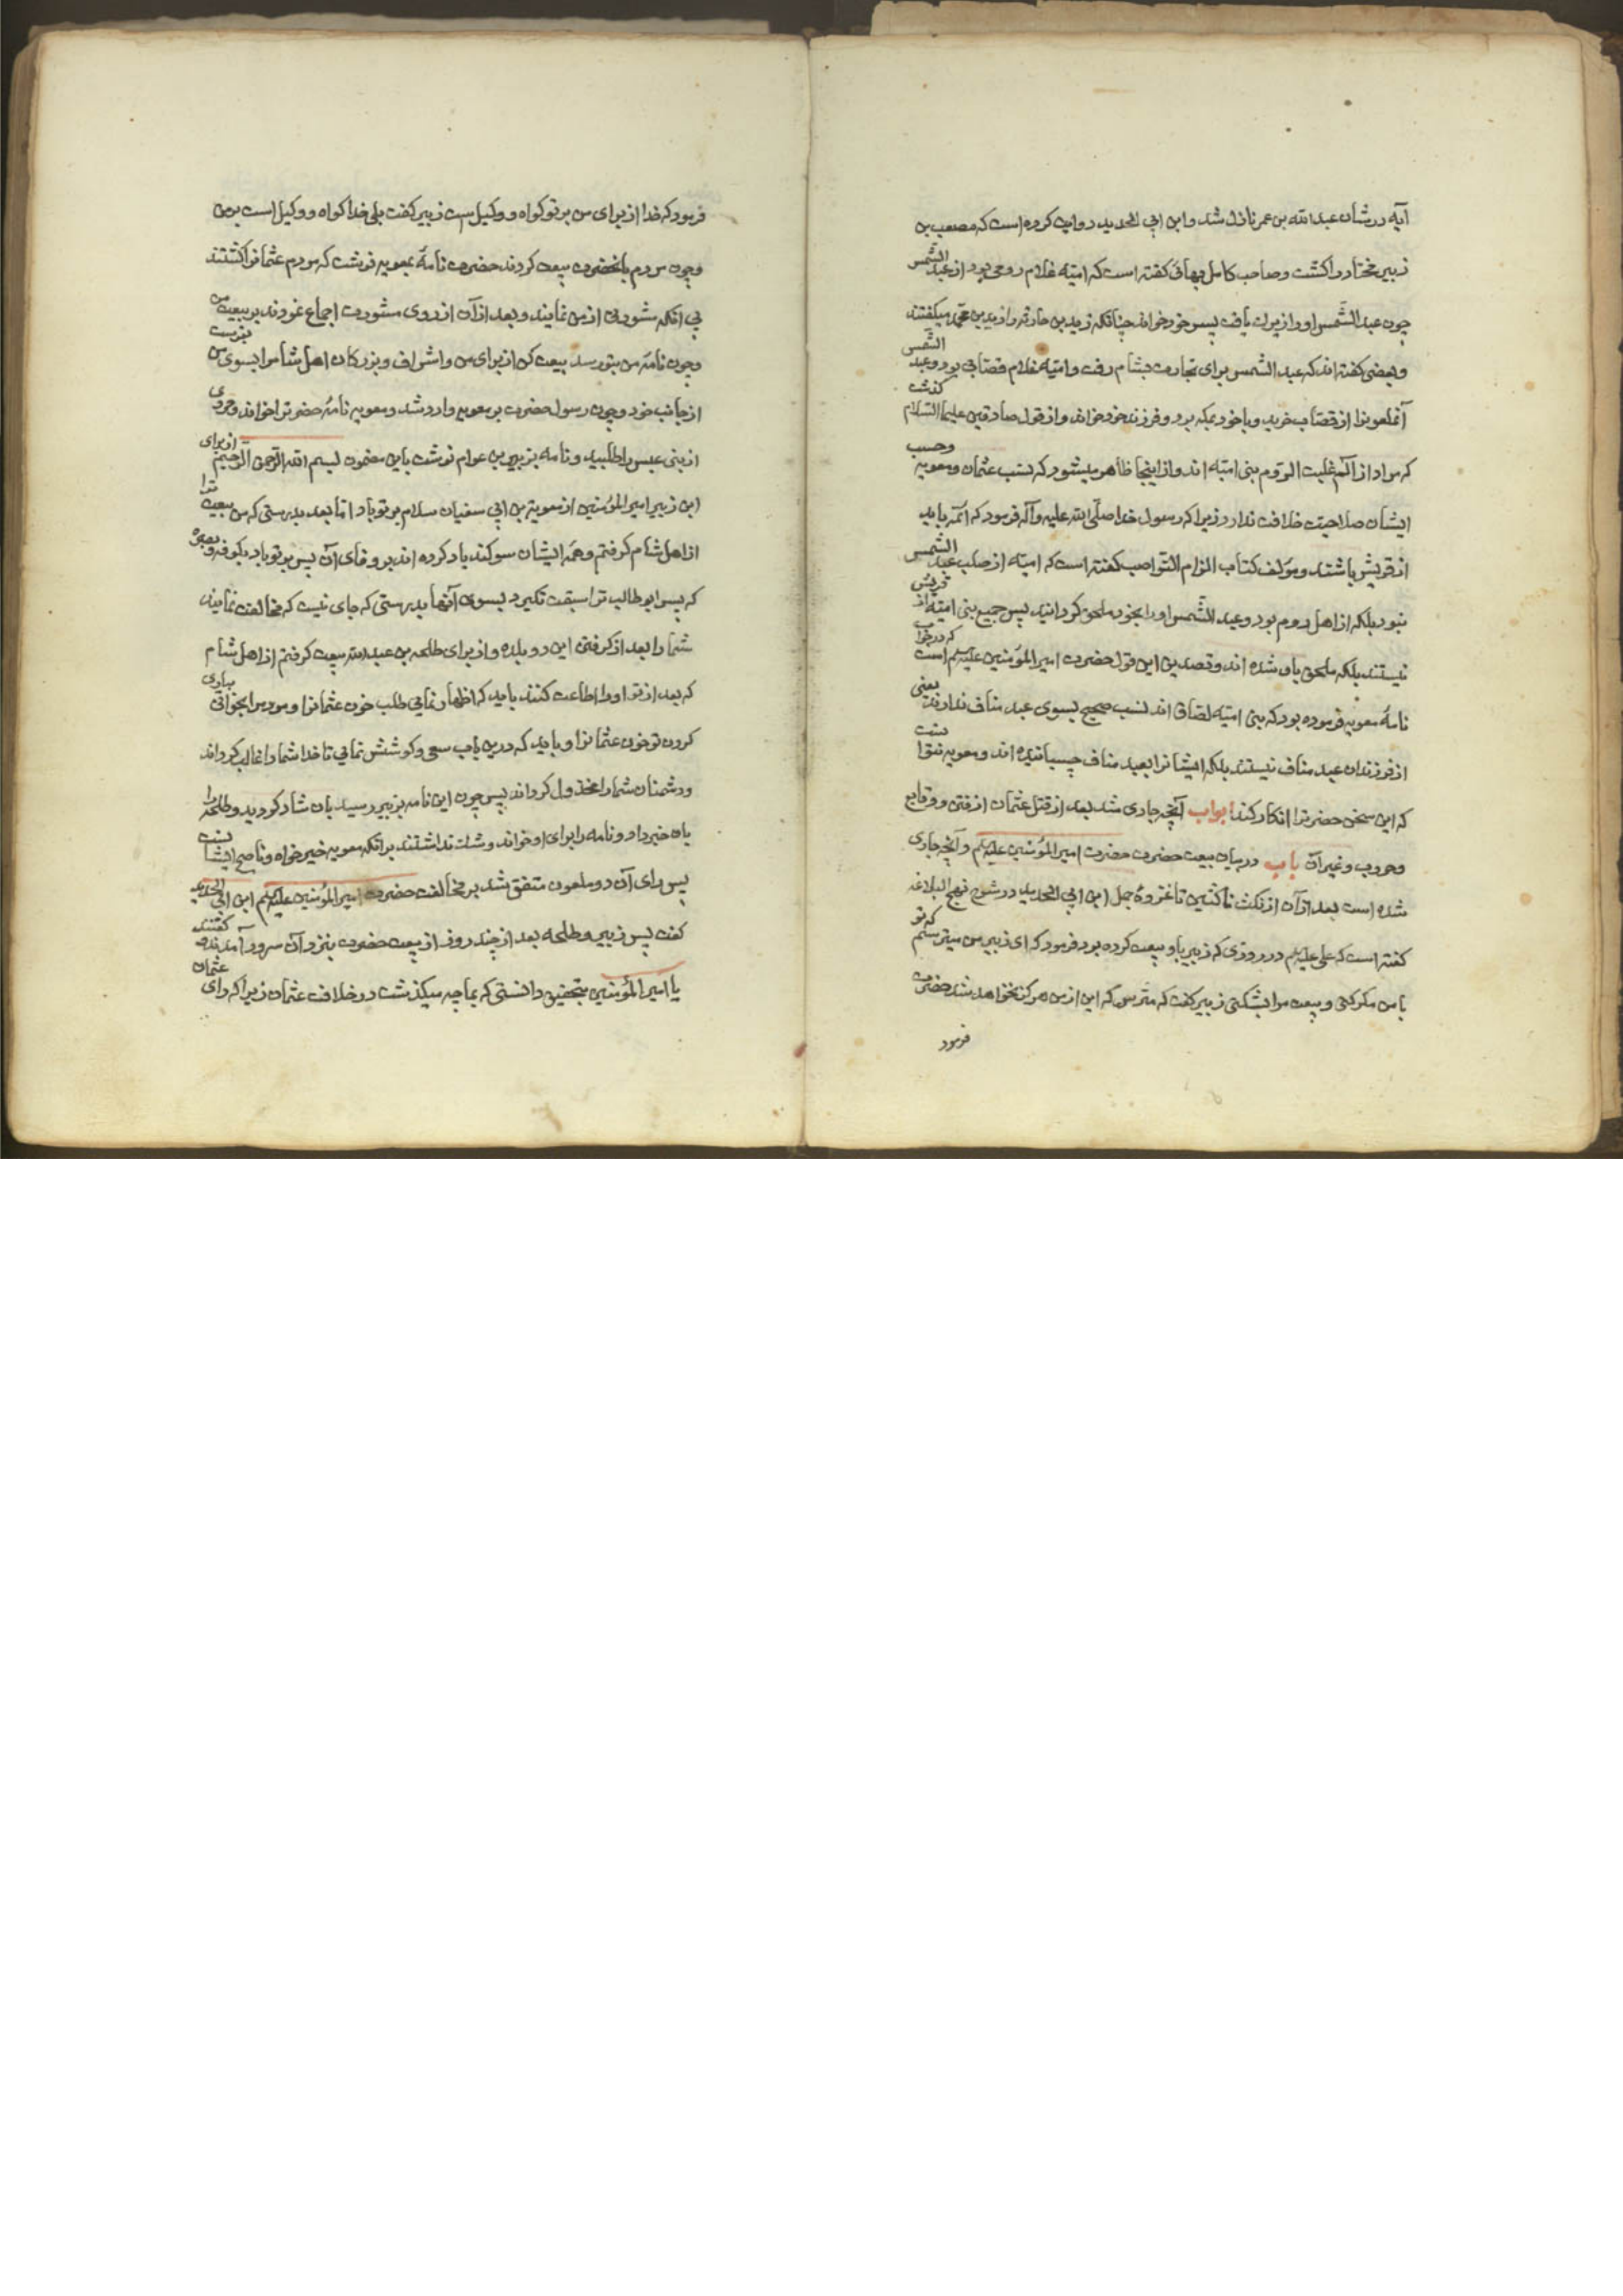 آیه در شان عبدالله بن عمر نازل شد و ابن ابی الحدید روایت کرده است که مصعب بن
زبیر مختار را کشت و صاحب کامل بهائی کفته است که امیّه غلام رومی بود از عبد الشّمس
چون عبد الشّمس او را زیرک یافت پسر خود خواند چنانکه زید بن حارثه را زید بن محمّد میکفتند
و بعضی کفته اند که عبد الشمس برای تجارت بشام رفت و امیّه غلام قصّابی بود و عبد الشّمس
آنملعونرا از قصّاب خرید و با خود بمکه برد و فرزند خود خواند و از قول صادقین علیهما السّلام کذشت
که مراد از الٓم غلبت الرّوم بنی امیّه اند و از اینجا ظاهر میشود که نسب عثمان و معویه وحسب
ایشان صلاحیّت خلافت ندارد زیرا که رسول خدا صلّی الله علیه وآله فرمود که ائمّه باید
از قریش باشند و مؤلف کتاب الزام النّواصب کفته است که امیّه از صلب عبد الشّمس
نبود بلکه از اهل روم بود و عبد الشّمس او را بخود ملحق کردانید پس جمیع بنی امیّه از قریش
نیستند بلکه ملحق باو شده اند و تصدیق این قول حضرت امیر المؤمنین علیه‌السلم است که در جواب
نامهٔ معویه فرموده بود که بنی امیّه لصاق اند نسب صحیح بسوی عبد مناف ندارند یعنی
از فرزندان عبد مناف نیستند بلکه ایشانرا بعبد مناف چسبانیده اند و معویه نتوانست
که این سخن حضرترا انکار کند ابواب آنچه جاری شد بعد از قتل عثمان از فتن و وقایع
وحروب وغیر آن باب در بیان بیعت حضرت امیر المؤمنین علیه‌السلم و آنچه جاری
شده است بعد از آن از نکث ناکثین تا غزوهٔ جمل ابن ابی الحدید در شرح نهج البلاغه
کفته است که علی علیه‌السلم در روزی که زبیر باو بیعت کرده بود فرمود که ای زبیر من میترسم که تو
با من مکر کنی و بیعت مرا بشکنی زبیر کفت که مترس که این از من هرکز نخواهد شد حضرت
فرمود
فرمود که خدا از برای من بر تو کواه و وکیل است زبیر کفت بلی خدا کواه و وکیل است بر من
وچون مردم با نحضرت بیعت کردند حضرت نامهٔ بمعویه نوشت که مردم عثمانرا کشتند
بی انکه مشورتی از من نمایند و بعد از آن از روی مشورت اجماع نمودند بر بیعت من
وچون نامهٔ من بتو رسد بیعت کن از برای من و اشراف و بزرکان اهل شام را بسوی من بفرست
از جانب خود وچون رسول حضرت بر معویه وارد شد و معویه نامهٔ حضرترا خواند مردی
از بنی عبس را طلبید و نامه بزبیر بن عوام نوشت باین مضمون بسم الله الرّحمن الرّحیم از برای
ابن زبیر امیر المؤمنین از معویة بن ابی سفیان سلام بر تو باد امّا بعد بدرستی که من بیعت ترا
از اهل شام کرفتم و همهٔ ایشان سوکند یاد کرده اند بر وفای آن پس بر تو باد بکوفه و بصره
که پسر ابو طالب ترا سبقت نکیرد بسوی آنها بدرستی که جای نیست که مخالفت نمایند
شما را بعد از کرفتن این دو بلده و از برای طلحه بن عبدالله بیعت کرفتم از اهل شام
که بعد از تو او را اطاعت کنند باید که اظهار نمایی طلب خون عثمانرا و مردم را بخوانی بیاری
کردن تو خون عثمانرا و باید که در این باب سعی و کوشش نمایی تا خدا شما را غالب کرداند
و دشمنان شما را مخذول کرداند پس چون این نامه بزبیر رسید بان شاد کردید و طلحه را
بان خبر داد و نامه را برای او خواند و شک نداشتند بر انکه معویه خیر خواه و ناصح ایشانست
پس رای آن دو ملعون متفق شد بر مخالفت حضرت امیر المؤمنین علیه‌السلم ابن ابی الحدید
کفت پس زبیر و طلحه بعد از چند روز از بیعت حضرت بنزد آن سرور آمدند و کفتند
یا امیر المؤمنین بتحقیق دانستی که بما چه میکذشت در خلافت عثمان زیرا که رای عثمان